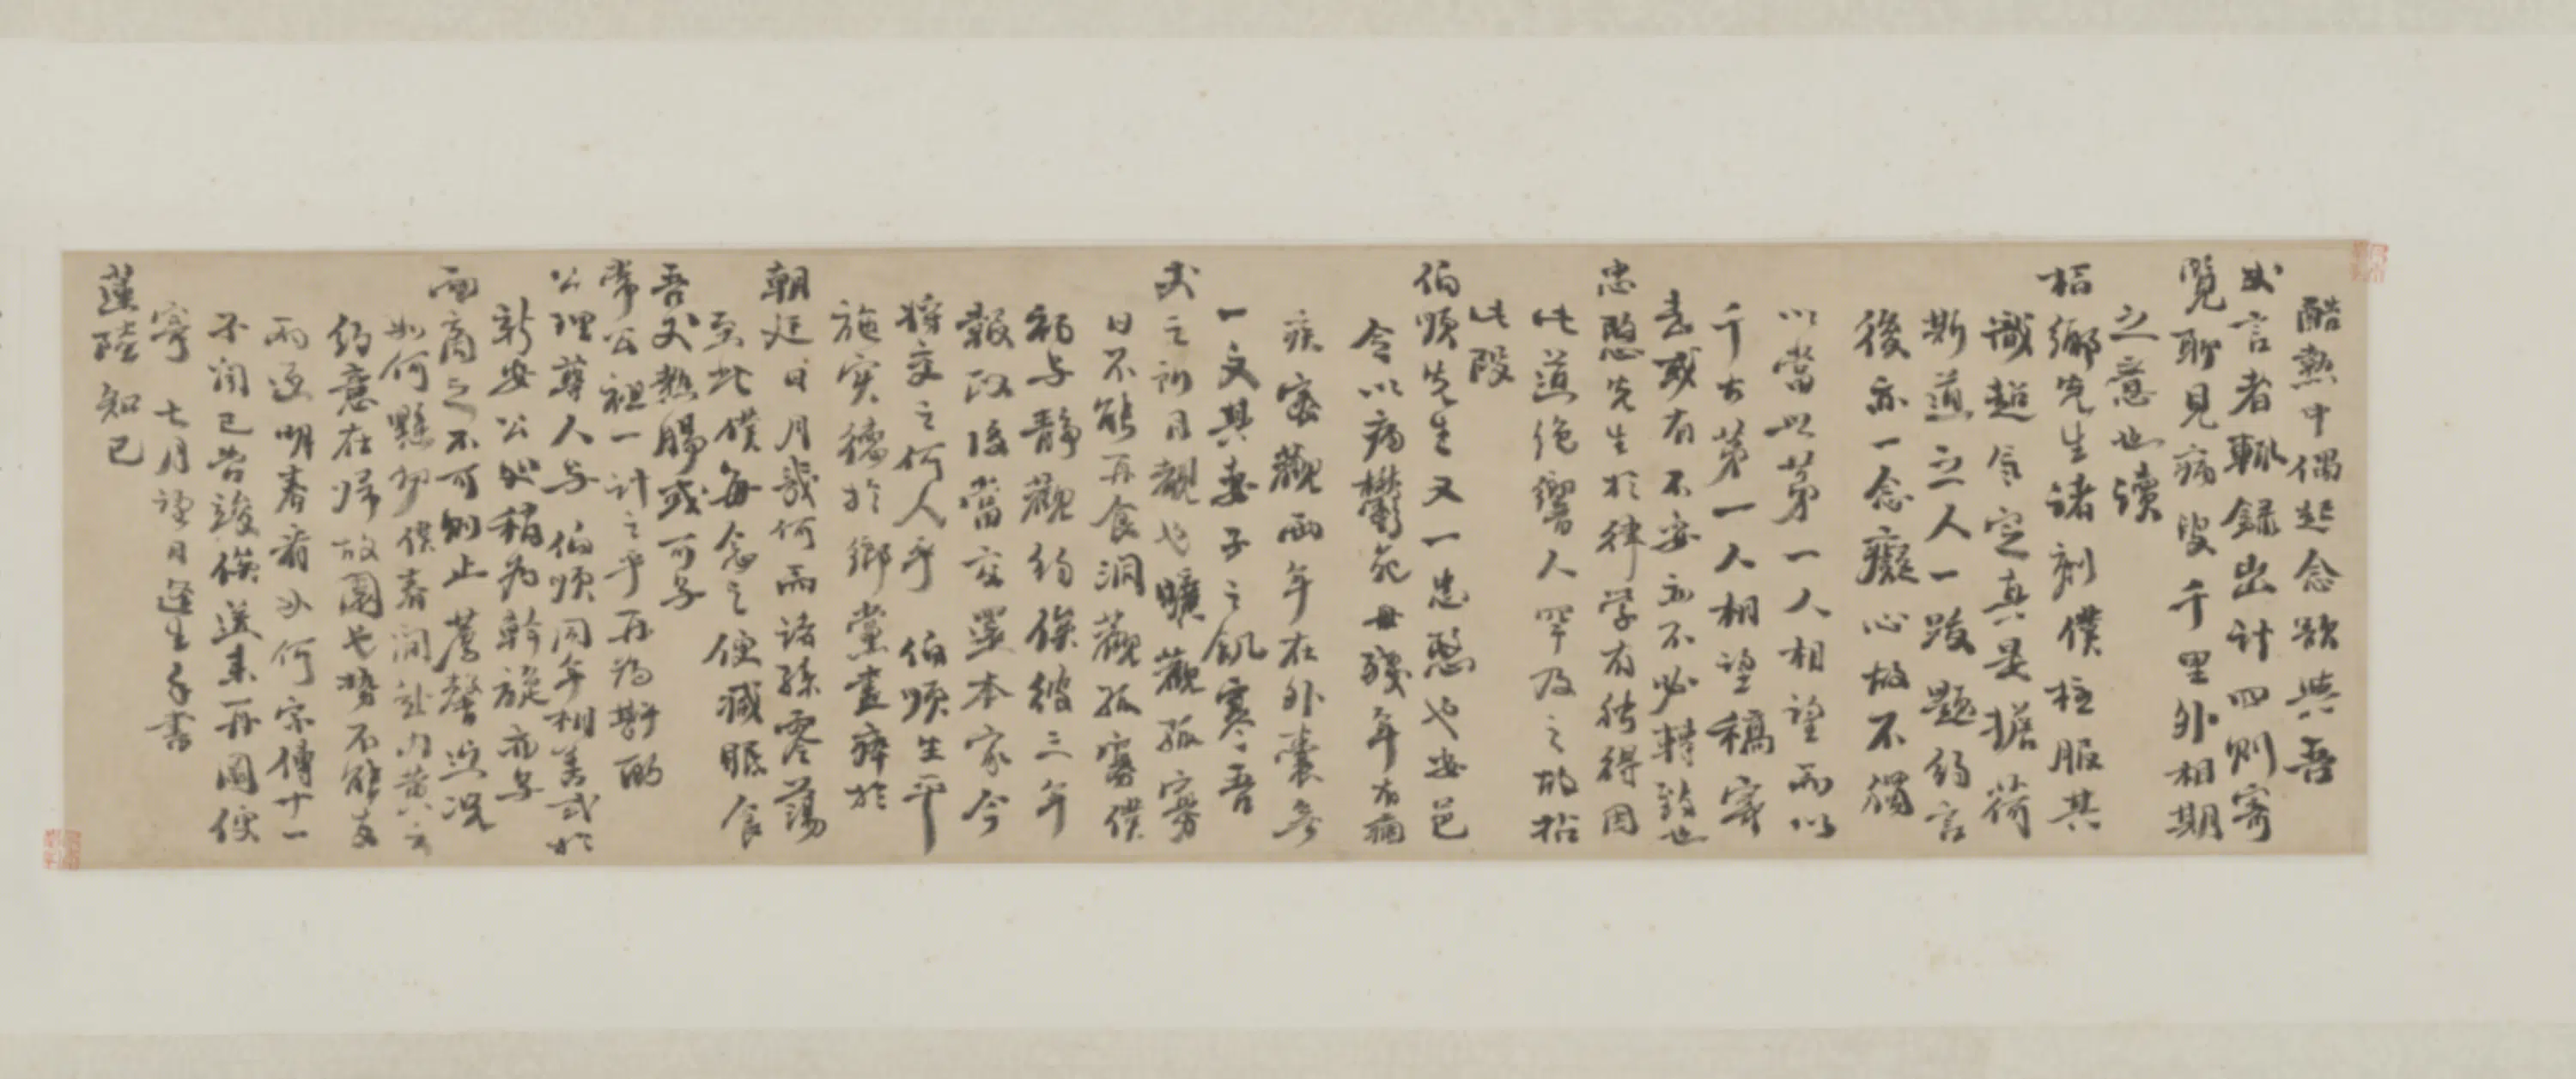 酷熱中偶起念欲與吾
丈言者輒錄出計四則寄
覽聊見病叟千里外相期
之意也讀
梧鄉先生諸刻僕極服其
識超氣定真是擔荷
斯道之人一跋題約言
後亦一念癡心故不獨
以當世第一人相望而以
千古第一人相望稿寄
去或有不妥處不必轉致也
忠愍先生於律學有所得因
此道絕響人罕及之故拈
此段
伯順先生又一忠愍也安邑
令以病鬱死母殘年有痼
疾寡觀兩年在外囊無
一文其妻子之飢寒吾
丈之所目覩也曠觀孤寡
日不能再食洞觀孤寡僕
初與靜觀約俟彼三年
報政後當交還本家今
將交之何人乎 伯順生平
施實德於鄉黨盡瘁於
朝廷日月幾何而諸孫零落
至此僕每念之便減眠食
吾丈熱腸或可與
常公祖一計之乎再為斟酌
公理尊人與 伯順同年相善或於
新安公處稍為斡旋亦與
面商之不可則止 馨近況
如何懸切僕春間赴內黃
約意在歸故園老勢不能支
兩返明春看如何宗傳十一
不聞已皆竣俟送來再圖便
寄 七月望日逢生子書
蓮陸知己